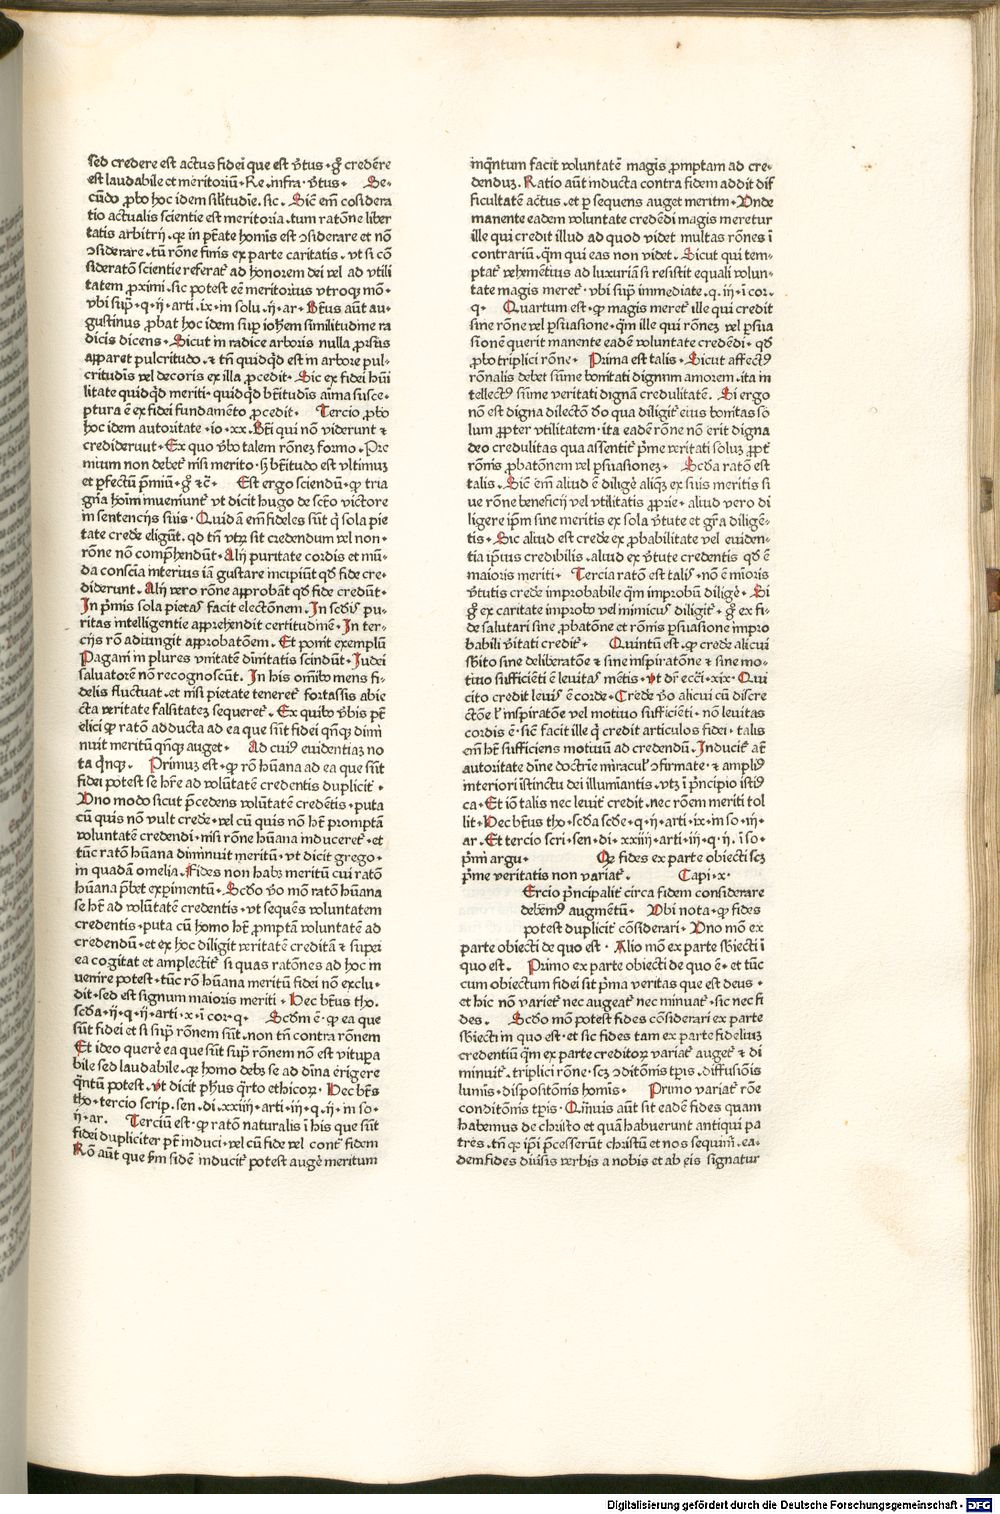 sed credere est actus fidei que est v̄tus · gͦ credēre
est laudabile et meritoriū · Re · infra · v̄tus · Se-
cūdo ꝓbo hoc idem silitudīe · sic · Sic̄ em̄ cōsidera
tio actualis scientie est meritoria · tum ratōne liber
tatis arbitrij · qꝛ in pt̄ate homīs est ↄsiderare et nō
ↄsiderare · tū rōne finis ex parte caritatis · vt si cō
sideratō scientie referat᷑ ad honorem dei vel ad vtili
tatem ꝓximi · sic potest eē meritorius vtroqꝫ mō ·
vbi sup̄ · q · ij · arti · ix · in solu · ij · ar · Bt̄us aūt au-
gustinus ꝓbat hoc idem sup̄ iohem similitudine ra
dicis dicens · Sicut in radice arboris nulla ꝓrsus
apparet pulcritudo · ⁊ tn̄ quidqd̄ est in arbore pul-
critudis vel decoris ex illa ꝓcedit · Sic ex fidei hūi
litate quidqd̄ meriti · quidqd̄ bt̄itudis aīma susce-
ptura ē ex fidei fundamēto ꝓcedit · Tercio ꝓbo
hoc idem autoritate · io · xx · Bt̄i qui nō viderunt ⁊
crediderunt · Ex quo v̄bo talem rōneꝫ formo · Pre
mium non debet᷑ nisi merito · sꝫ bt̄itudo est vltimuꝫ
et ꝑfectū p̄miū · gͦ ⁊c̄ · Est ergo sciendū · ꝙ tria
gn̄a hoīm inueniunt᷑ vt dicit hugo de sct̄o victore
in sentencijs suis · Quidā em̄ fideles sūt q̇ sola pie
tate cred̄e eligūt · qd tn̄ vtꝝ sit credendum vel non ·
rōne nō comp̄hendūt · Alij puritate cordis et mū-
da conscia interius iā gustare incipiūt qd̄ fide cre-
diderunt · Alij vero rōne approbāt qd̄ fide credūt ·
In p̄mis sola pietas facit electōnem · In scd̄is pu-
ritas intelligentie apprehendit certitudinē · In ter-
cijs rō adiungit approbatōem · Et ponit exemplū
Pagani in plures vnitatē diuinitatis scindūt · Iudei
saluatorem nō recognoscūt · In his om̄ibꝰ mens fi-
delis fluctuat · et nisi pietate teneret᷑ fortassis abie
cta veritate falsitateꝫ sequeret᷑ · Ex quibꝰ v̄bis pt̄
elici ꝙ ratō adducta ad ea que sūt fidei qn̄qꝫ dimī
nuit meritū qn̄qꝫ auget · Ad cuiꝰ euidentiaꝫ no
ta q̇nqꝫ · Primuꝫ est · ꝙ rō hūana ad ea que sūt
fidei potest se hr̄e ad volūtatē credentis duplicit᷑ ·
Vno modo sicut p̄cedens volūtatē credētis · puta
cū quis nō vult cred̄e · vel cū quis nō ht̄ promptā
voluntatē credendi · nisi rōne hūana induceret᷑ · et
tūc ratō hūana diminuit meritū · vt dicit grego ·
in quadā omelia · Fides non habꝫ meritū cui ratō
hūana p̄bet expimentū · Scd̄o v̄o mō ratō hūana
se ht̄ ad volūtatē credentis · vt sequēs voluntatem
credentis · puta cū homo ht̄ promptā volūtatē ad
credendū · et ex hoc diligit veritatē creditā ⁊ super
ea cogitat et amplectit᷑ si quas ratōnes ad hoc in
uenire potest · tūc rō hūana meritū fidei nō exclu-
dit · sed est signum maioris meriti · Hec bt̄us tho ·
scd̄a · ij · q · ij · arti · x · ī cor · q · Scd̄m ē · ꝙ ea que
sūt fidei et si sup̄ rōnem sūt · non tn̄ contra rōnem
Et ideo querē ea que sūt sup̄ rōnem nō est vitupa
bile sed laudabile · qꝛ homo debꝫ se ad diuīa erigere
qn̄tū potest · vt dicit ph̄us q̇rto ethicoꝝ · Hec bt̄s
tho · tercio scrip · sen · di · xxiiij · arti · iij · q · ij · in so-
ij · ar · Terciū est · ꝙ ratō naturalis ī his que sūt
fidei dupliciter pt̄ induci · vel cū fide vel contͣ fidem
Rō aūt que ẜm fidē inducit᷑ potest augē meritum
inqn̄tum facit voluntatē magis ꝓmptam ad cre-
denduꝫ · Ratio aūt inducta contra fidem addit dif
ficultatē actus · et ꝑ sequens auget meritm̄ · Vnde
manente eadem voluntate credēdi magis meretur
ille qui credit illud ad quod videt multas rōnes ī
contrariū · q̄m qui eas non videt · Sicut qui tem-
ptat᷑ vehemētius ad luxuriā si resistit equali volun-
tate magis meret᷑ · vbi sup̄ immediate · q · iij · ī cor ·
q · Quartum est · ꝙ magis meret᷑ ille qui credit
sine rōne vel ꝑsuasione · q̄m ille qui rōneꝫ vel ꝑsua
sionē querit manente eadē voluntate credēdi · qd̄
ꝓbo triplici rōne · Prima est talis · Sicut affectꝰ
rōnalis debet sūme bonitati dignum amorem · ita in
tellectꝰ sūme veritati dignā credulitatē · Si ergo
nō est digna dilectō deo qua diligit᷑ eius bonitas so
lum propter vtilitatem · ita eadē rōne nō erit digna
deo credulitas qua assentit᷑ p̄me veritati soluꝫ ꝓpt̄
rōnis ꝓbatōnem vel ꝑsuasioneꝫ · Scd̄a ratō est
talis · Sic̄ em̄ aliud ē diligē aliqꝫ ex suis meritis si
ue rōne beneficij vel vtilitatis ꝓprie · aliud vero di
ligere ip̄m sine meritis ex sola v̄tute et gr̄a diligē-
tis · Sic aliud est cred̄e ex ꝓbabilitate vel euiden-
tia ip̄ius credibilis · aliud ex v̄tute credentis qd̄ ē
maioris meriti · Tercia ratō est talis · nō ē mioris
v̄tutis cred̄e improbabile q̄m improbū diligē · Si
gͦ ex caritate improbꝰ vel inimicus diligit᷑ · gͦ ex fi-
de salutari sine ꝓbatōne et rōnis ꝑsuasione impro
babili v̄itati credit᷑ · Quintū est · ꝙ cred̄e alicui
sb̄ito sine deliberatōe ⁊ sine inspiratōne ⁊ sine mo-
tiuo sufficiēti ē leuitas mētis · vt dr̄ ecci · xix · Qui
cito credit leuis ē corde · Cred̄e v̄o alicui cū discre
ctōe l᷑ inspiratōe vel motiuo sufficiēti · nō leuitas
cordis ē · sic̄ facit ille q̇ credit articulos fidei · talis
em̄ ht̄ sufficiens motiuū ad credendū · Inducit᷑ at̄
autoritate diuīe doctrīe miracul᷑ ↄfirmate · ⁊ ampliꝰ
interiori īstinctu dei illumiātis · vtꝫ ī p̄ncipio istiꝰ
ca · Et iō talis nec leuit᷑ credit · nec rōem meriti tol
lit · Hec bt̄us tho · scd̄a scd̄e · q · ij · arti · ix · in so · iij ·
ar · Et tercio scri · sen · di · xxiiij · arti · iij · q · ij · ī so ·
p̄mi argu · Qꝙ fides ex parte obiecti scꝫ
p̄me veritatis non variat᷑ · Capi · x ·
Ercio p̄ncipalit᷑ circa fidem considerare
debemꝰ augmētū · Vbi nota · ꝙ fides
potest duplicit᷑ cōsiderari · Vno mō ex
parte obiecti de quo est · Alio mō ex parte sb̄iecti ī
quo est · Primo ex parte obiecti de quo ē · et tūc
cum obiectum fidei sit p̄ma veritas que est deus ·
et hic nō variet᷑ nec augeat᷑ nec minuat᷑ · sic nec fi
des · Scd̄o mō potest fides cōsiderari ex parte
sb̄iecti in quo est · et sic fides tam ex parte fideliuꝫ
credentiū q̄m ex parte creditoꝝ variat᷑ auget᷑ ⁊ di
minuit᷑ · triplici rōne · scꝫ ↄditōnis tp̄is · diffusiōis
lumīs · dispositōnis homīs · Primo variat᷑ rōe
conditōnis tp̄is · Quīuis aūt sit eadē fides quam
habemus de christo et quā habuerunt antiqui pa
tres · tn̄ qꝛ ip̄i p̄cesserūt christū et nos sequim᷑ · ea-
dem fides diu̇sis verbis a nobis et ab eis signatur
Digitalisierung gefördert durch die Deutsche Forschungsgemeinschaft - DFG